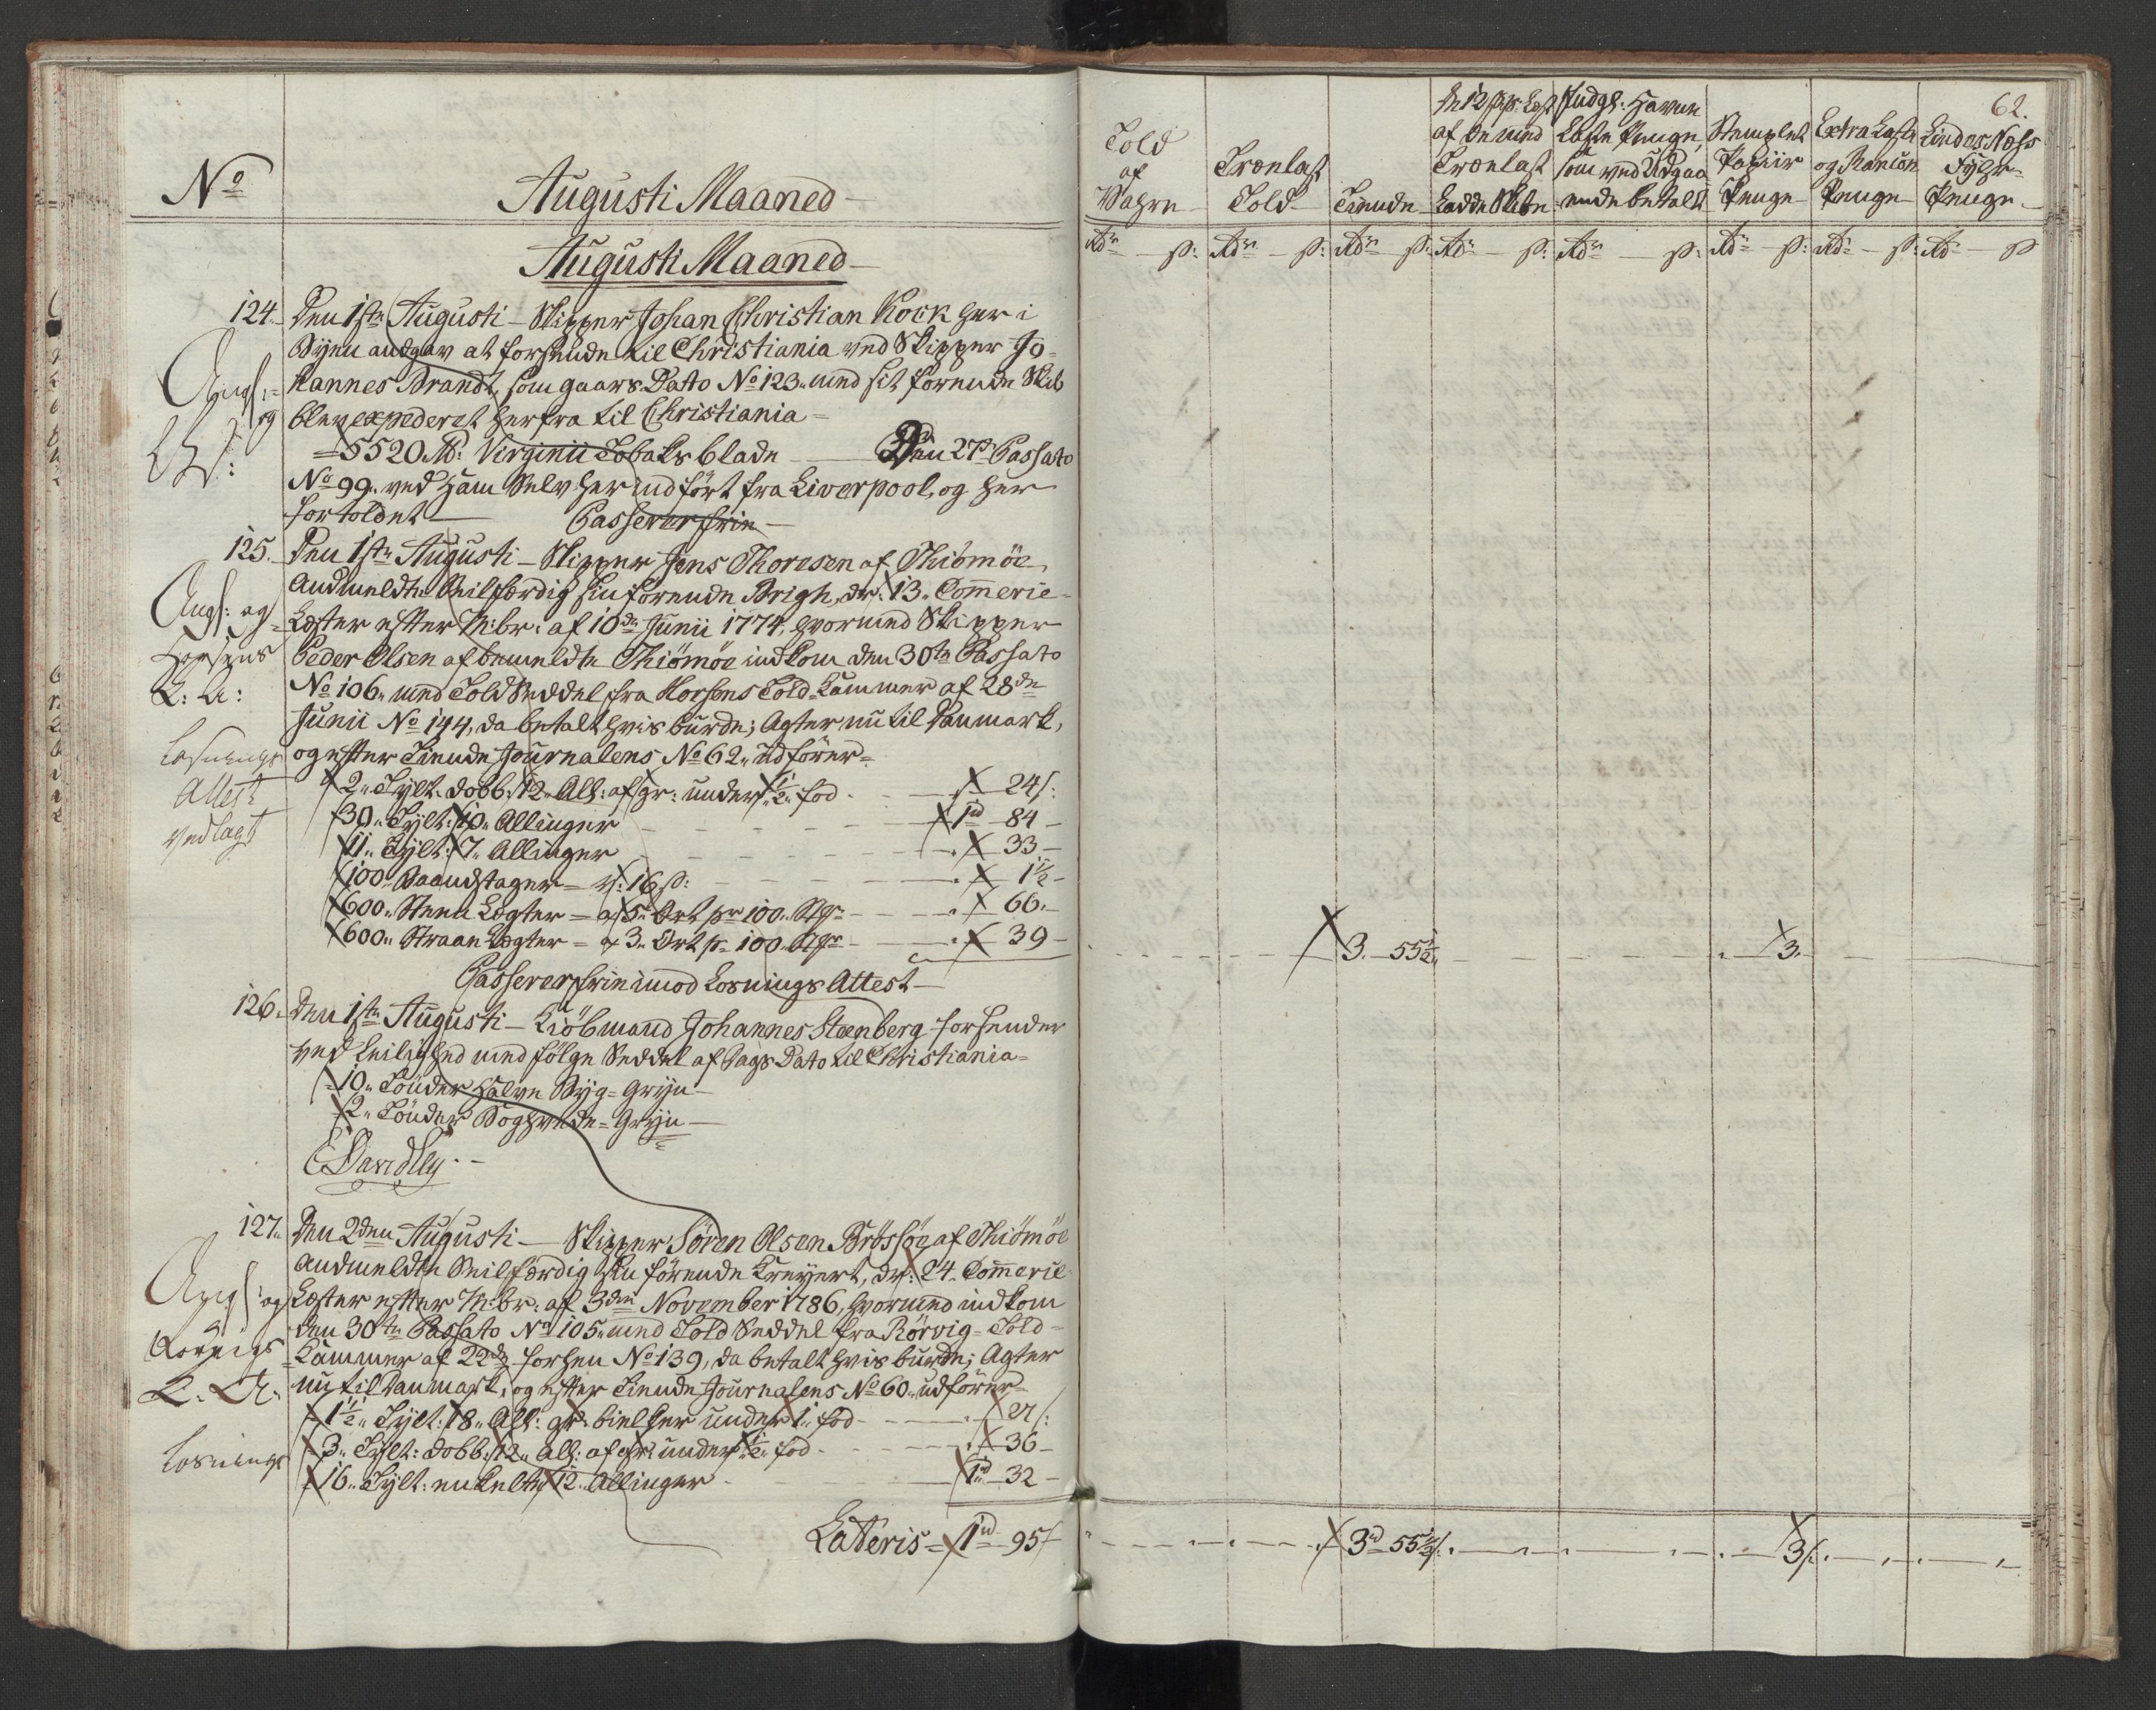 No
Augusti Maaned
Augusti Maaned
124. Den 1ste Augusti - Skipper Johan Christian Kock her i
Byen andgav at forsende til Christiania ved Skipper Jo-
hannes Brandt, som gaars Dato No 123. med sit förende Skib
blev expederet herfra til Christiania
5520 Pd: Virginii Tobaks blade - Den 27de Passato
No 99. ved ham Selv her indført fra Liverpool, og her
fortoldet - Passerer frie -
125. Den 1ste Augusti - Skipper Jens Thoresen af Thiömöe
Angl: og
Andmeldte Seilfærdig sin förende Brigh, dr: 13. Commerce
Læster efter M:br: af 10de Junii 1774, hvormed Skipper
Horsens
Peder Olsen af bemeldte Thiömöe indkom den 30te Passato
No 106. med Told Seddel fra Horsens Told-Kammer af 28de
Junii No 144, da betalt hvis burde; Agter nu til Danmark,
Losnings
og efter Tiende Journalens No 62. udförer
Attest
vedlagt
2. Tylt. dobb: 12. All: af gr: under 1/2. fod - 24 s:
30. Tylt: 10. Allinger - 1rd 84
11. Tylt: 7. Allinger - 33
100. Baandstager = v: 16 s: - 1 1/2
600. Steen Lægter = a 5. Ort pr 100. Stk - 66.
600. Straae Lægter = a 3. Ort p 100. Stk - 39
Passerer frie imod Losnings Attest -
126. Den 1ste Augusti - Kiöbmand Johannes Steenberg forsender
ved Leilighed med følge Seddel af Dags Dato til Christiania
10. Tönder halve Byg-Gryn
2. Tönder Boghvede-Gryn
127. Den 2den Augusti - Skipper Sören Olsen Brösöe af Thiömöe
Andmeldte Seilfærdig sin förende Kreyert, dr: 24. Commerce
og Læster efter M:br: af 3die November 1786, hvormed indkom
den 30te Passato No 105. med Told Seddel fra Rörvig Told-
Rörvigs
Kammer af 22de forhen No 139, da betalt hvis burde; Agter
nu til Danmark, og efter Tiende Journalens No 60. udförer
1 1/2. Tylt: 18. All: gr: bielker under 1. fod - 27 s:
Losnings
3. Tylt: dobb: 12. All: af gr: under 1/2. fod - 36
16. Tylt: enkelte 12. Allinger - 1rd 32
Lateris = 1rd 95 s
62.
Told af Vahre
Trælast Told
Tiende
De 12 s pr Læst af de med Trælast Ladde Skibe
Lædste Penge, som ved Udgaaende betalt
Stemplet Papiir Penge
Extra Læste og Rancion Penge
Lindes Næss Fyhr Penge
Rdr s: Rdr s: Rdr s: Rdr s: Rdr s: Rd s: Rd s: Rd s
3. 55 1/2
3.
3rd 55 1/2 s.
3 s.